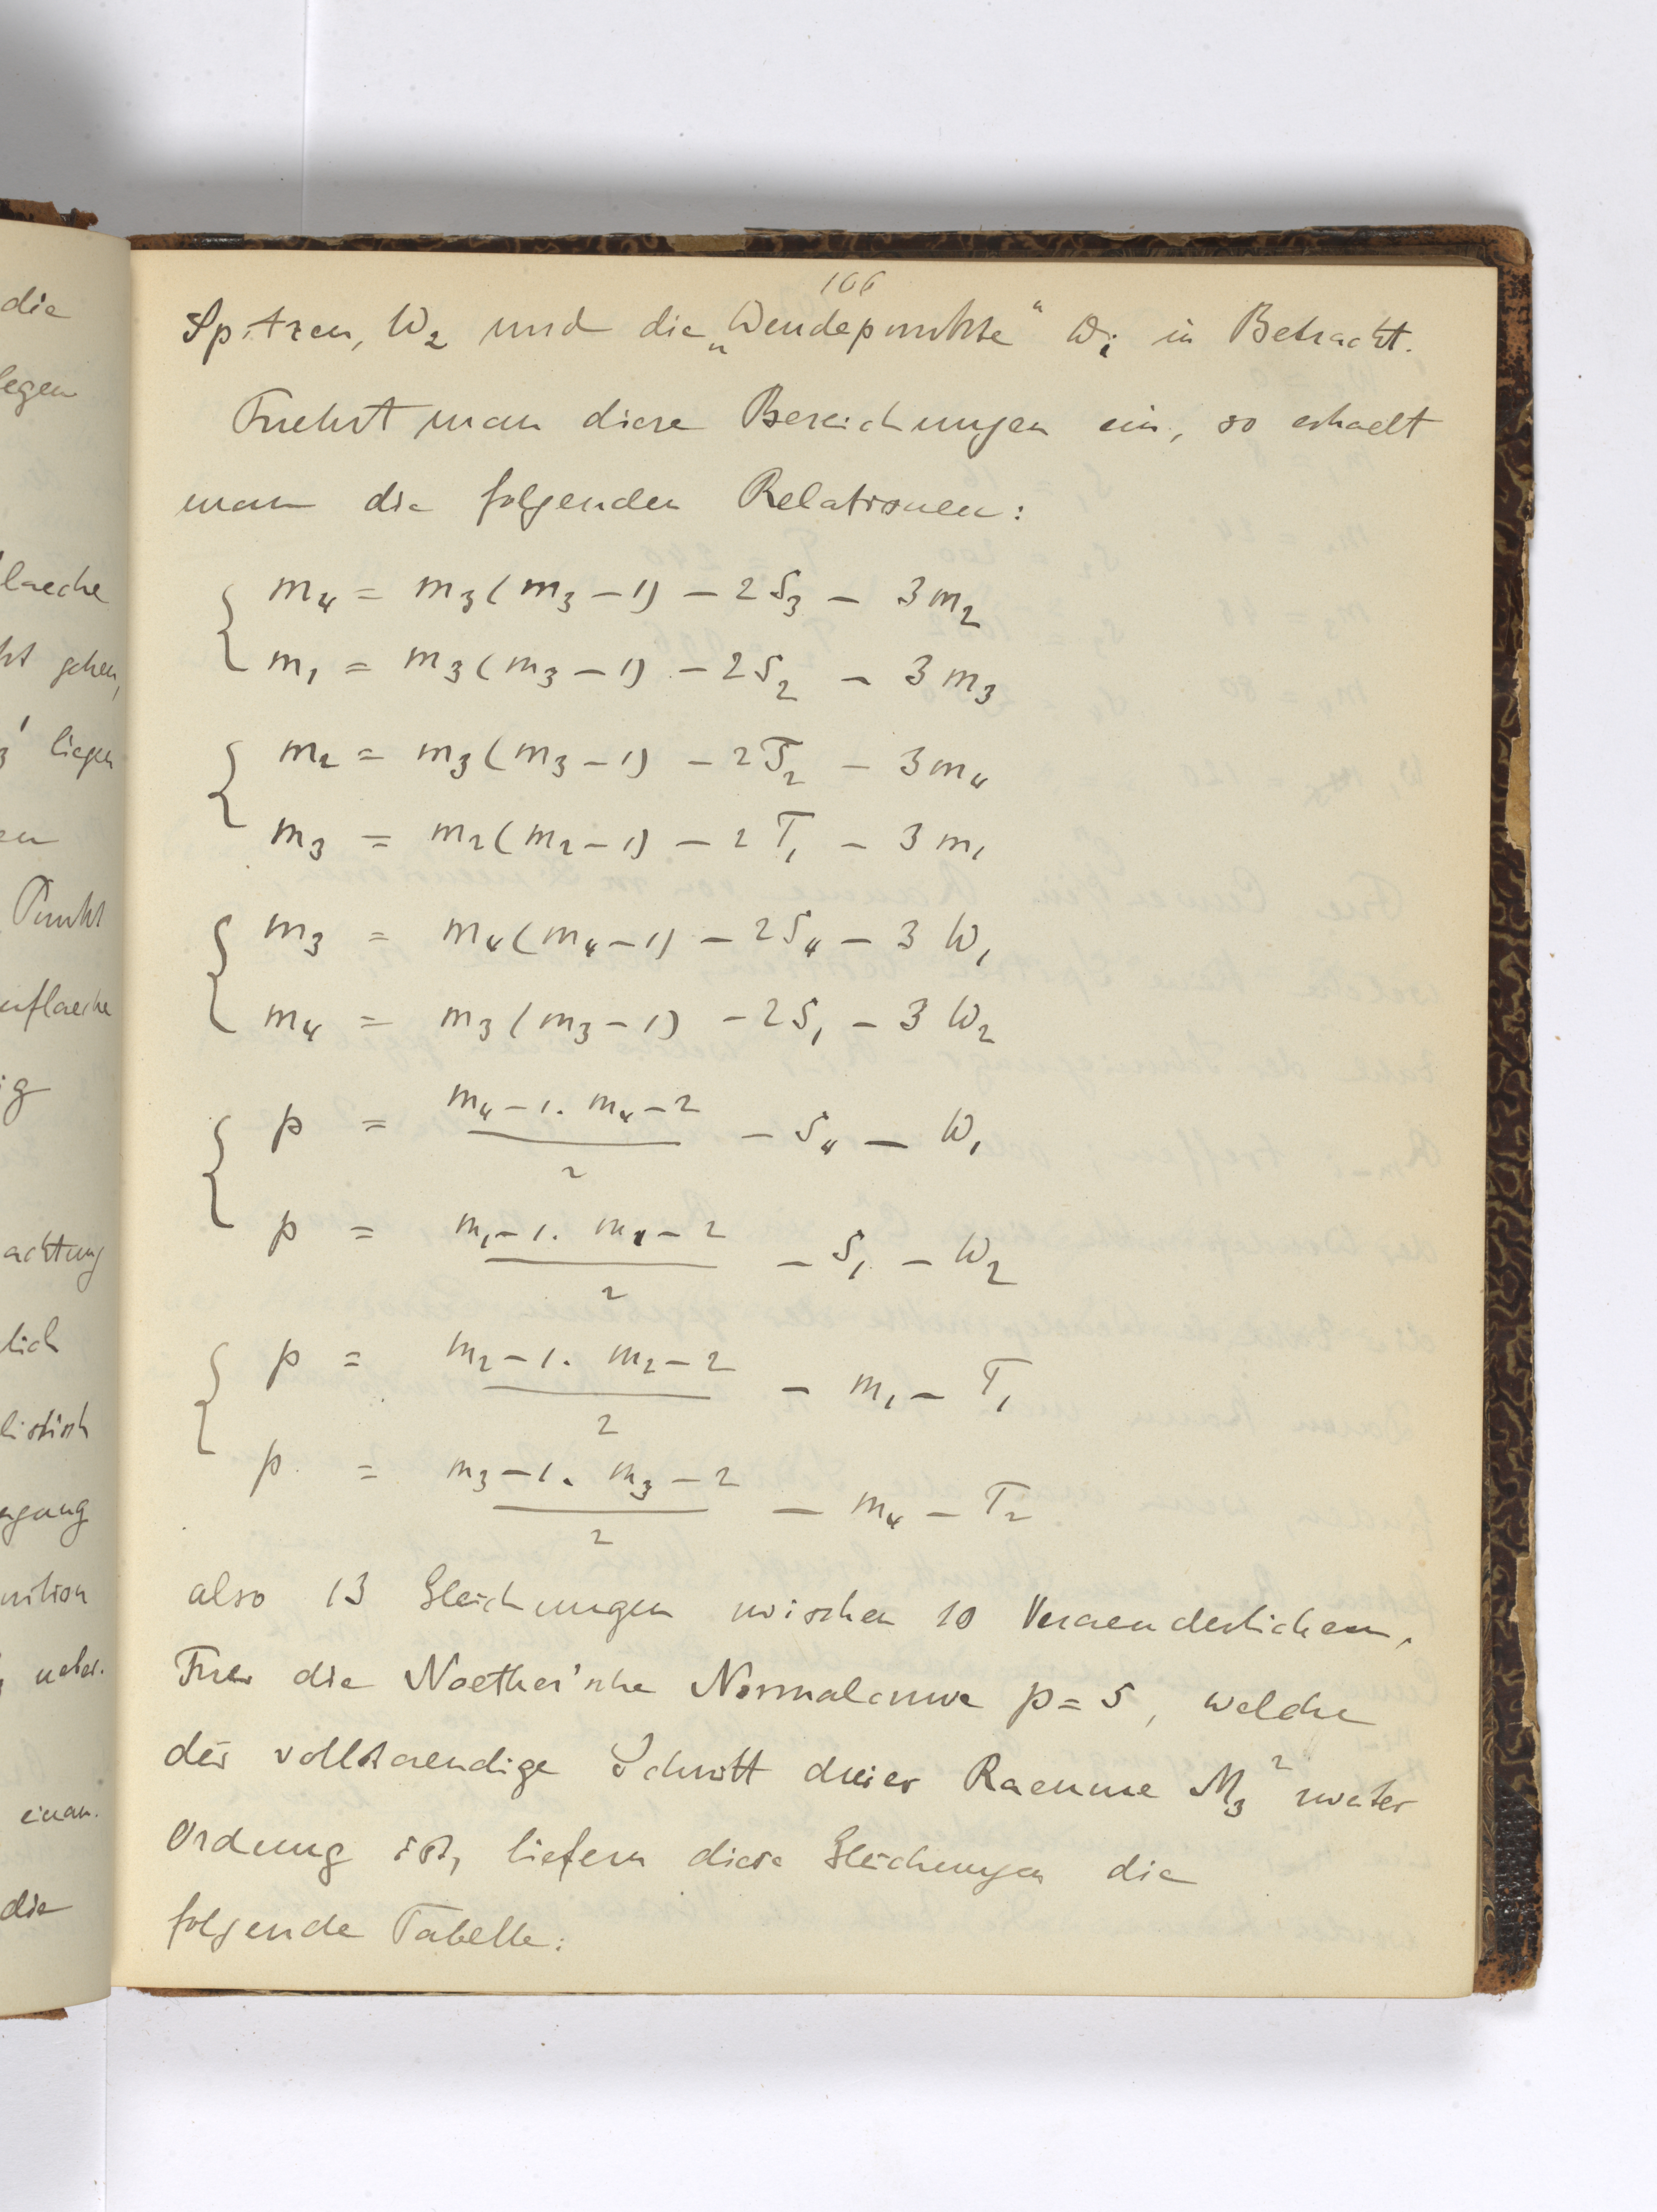 die
legen
laeche
ht gehen,
3' liegen
en
Punkt
enflaeche
ig
achtung
lich
listisch
rgang
nition
, ueber.
einan.
die
166
Spitzen, W₂ und die „Wendepunkte“ W₁ in Betracht.
Fuehrt man diese Bezeichnungen ein, so erhaelt
man die folgenden Relationen:
m₄ = m₃(m₃-1) - 2S₃ - 3m₂
m₁ = m₃(m₃-1) - 2S₂ - 3m₃
m₂ = m₃(m₃-1) - 2T₂ - 3m₄
m₃ = m₂(m₂-1) - 2T₁ - 3m₁
m₃ = m₄(m₄-1) - 2S₄ - 3W₁
m₄ = m₃(m₃-1) - 2S₁ - 3W₂
p = m₄-1. m₄-2 / 2 - S₄ - W₁
p = m₁-1. m₁-2 / 2 - S₁ - W₂
p = m₂-1. m₂-2 / 2 - m₁ - T₁
p = m₃-1. m₃-2 / 2 - m₄ - T₂
also 13 Gleichungen zwischen 10 Veraenderlichen.
Fuer die Noether'sche Normalcurve p=5, welche
der vollstaendige Schnitt dreier Raeume M₃² zweiter
Ordnung ist, liefern diese Gleichungen die
folgende Tabelle: